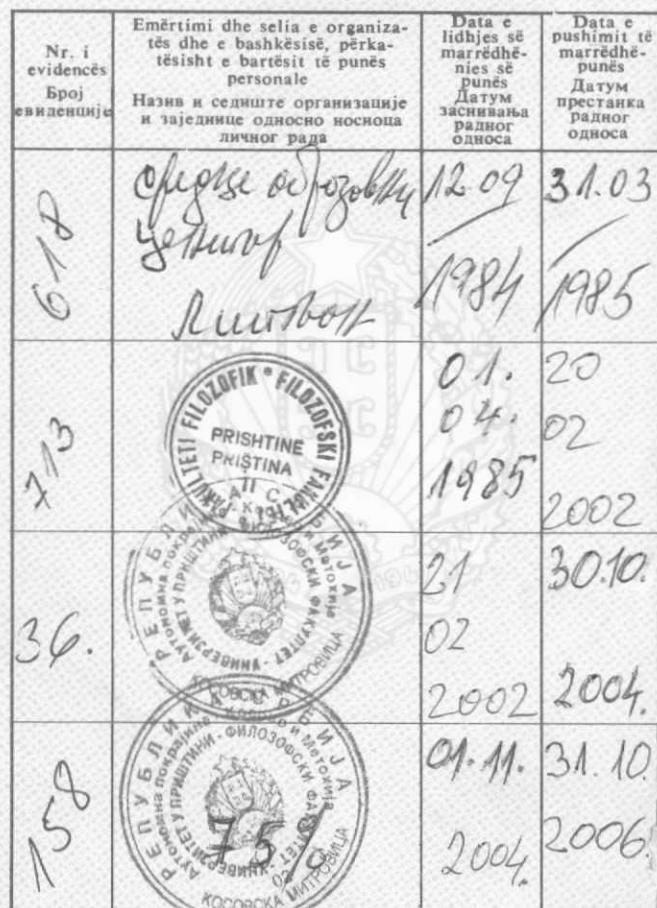 Nr. i
evidencës
Број
евиденције
Emërtimi dhe selia e organiza-
tës dhe e bashkësisë, përka-
tësisht e bartësit të punës
personale
Назив и седиште организације
и заједнице односно носиоца
личног рада
Data e
lidhjes së
marrëdhë-
nies së
punës
Датум
заснивања
радног
односа
Data e
pushimit të
marrëdhë-
punës
Датум
престанка
радног
односа
618
центар
12.09
1984
31.03
1985
713
FAKULTETI FILOZOFIK * FILOZOFSKI FAKULTET
PRISHTINË
PRIŠTINA
II
01.
04.
1985
20
02
2002
36.
РЕПУБЛИКА СРБИЈА
Аутономна покрајина Косово и Метохија
УНИВЕРЗИТЕТ У ПРИШТИНИ - ФИЛОЗОФСКИ ФАКУЛТЕТ
КОСОВСКА МИТРОВИЦА
21
02
2002
30.10.
2004.
158
РЕПУБЛИКА СРБИЈА
Аутономна покрајина Косово и Метохија
УНИВЕРЗИТЕТ У ПРИШТИНИ - ФИЛОЗОФСКИ ФАКУЛТЕТ
75%
КОСОВСКА МИТРОВИЦА
01.11.
2004.
31.10.
2006.